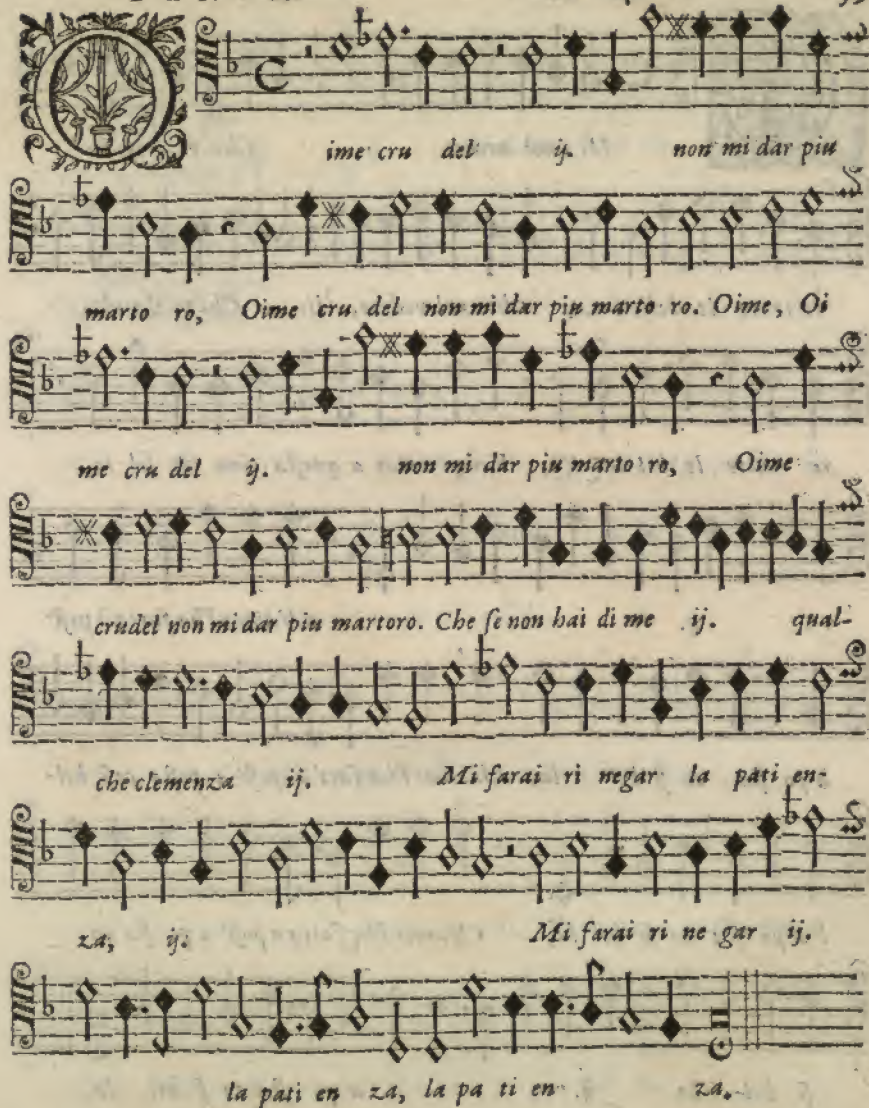 O
ime cru del ij. non mi dar piu
marto ro, Oime cru del non mi dar piu marto ro. Oime, Oi
me cru del ij. non mi dar piu marto ro, Oime
crudel non mi dar piu martoro. Che ſe non hai di me ij. qual-
che clemenza ij. Mi farai ri negar la pati en-
za, ij. Mi farai ri ne gar ij.
la pati en za, la pa ti en za.